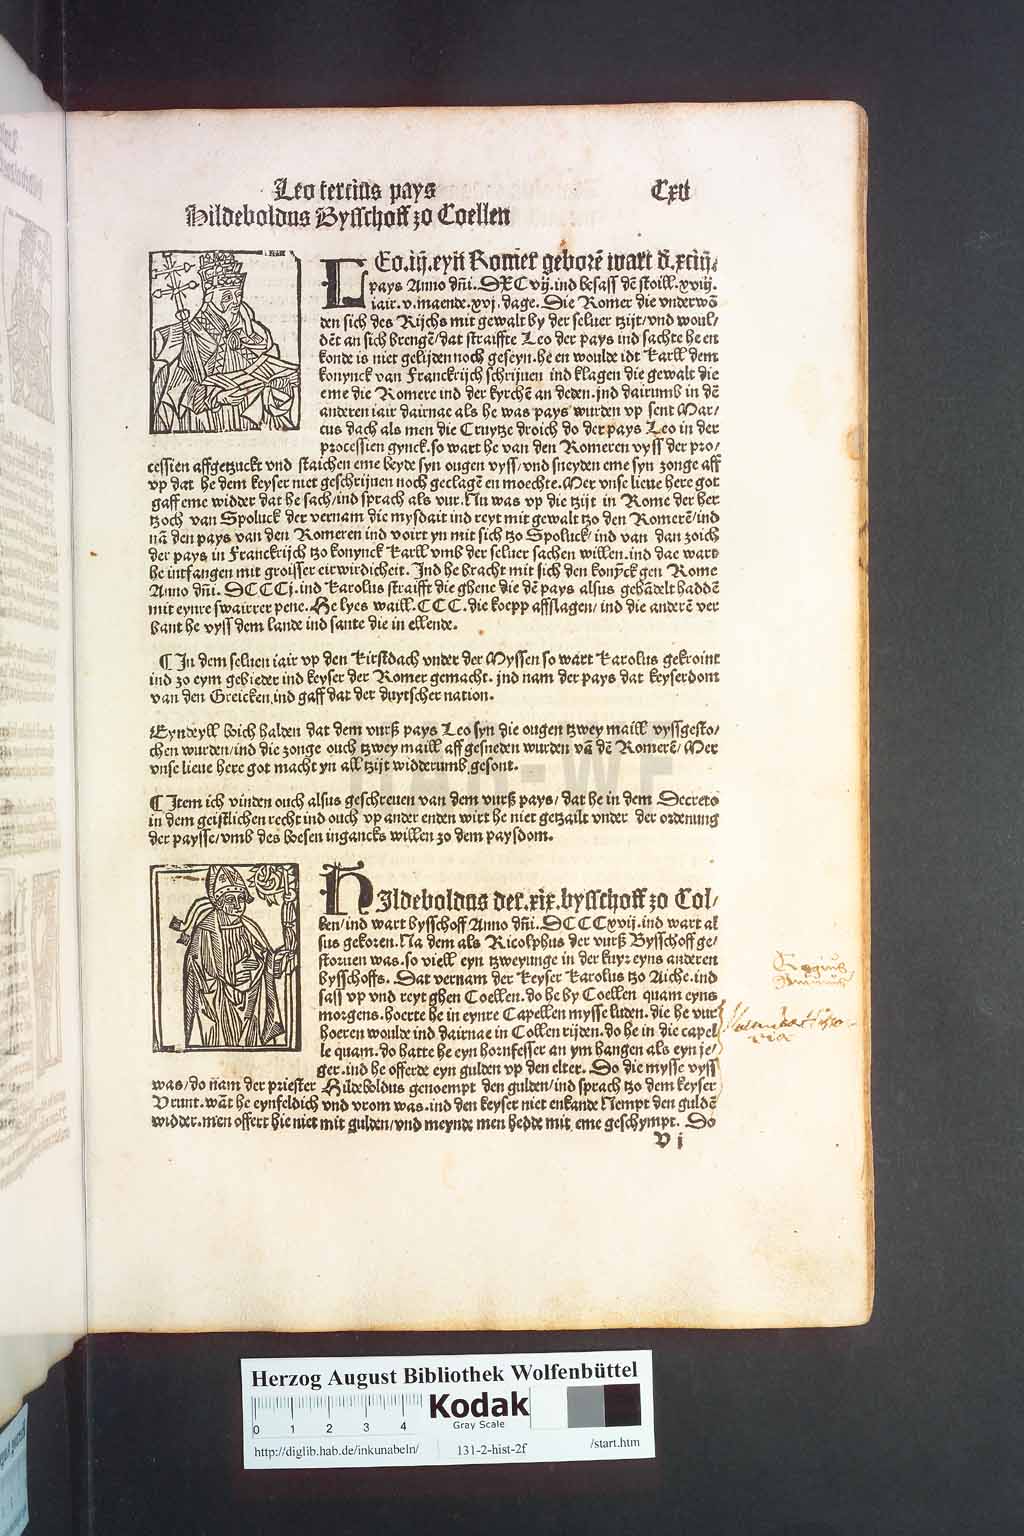 Leo tercius pays
Cxii
Hildeboldus Bysschoff zo Coellen
LEo.iij.eyn Romer geborē wart d̄.xciiij.
pays Anno dn̄i. DXCvij.ind besass dē stoill.xviij.
iair.v.maende.xvj.dage. Die Romer die vnderwō
den sich des Rijchs mit gewalt by der seluer tzijt/vnd woul/
dēt an sich brengē/dat straiffte Leo der pays ind sachte he en
konde is niet gelijden noch geseyn.he en woulde idt karll dem
konynck van Franckrijch schrijuen ind klagen die gewalt die
eme die Romere ind der kyrchē an deden.ind dairumb in dē
anderen iair dairnae als he was pays wurden vp sent Mar/
cus dach als men die Cruytze droich do der pays Leo in der
processien gynck.so wart he van den Romeren vyss der pro/
cessien affgetzuckt vnd staichen eme beyde syn ougen vyss/vnd sneyden eme syn zonge aff
vp dat he dem keyser niet geschrijuen noch geclagē en moechte.Mer vnse lieue here got
gaff eme widder dat he sach/ind sprach als vur.Nu was vp die tzijt in Rome der her
tzoch van Spoluck der vernam die mysdait ind reyt mit gewalt tzo den Romerē/ind
nā den pays van den Romeren ind voirt yn mit sich tzo Spoluck/ind van dan zoich
der pays in Franckrijch tzo konynck karll vmb der seluer sachen willen.ind dae wart
he intfangen mit groisser eirwirdicheit. Ind he bracht mit sich den konȳck gen Rome
Anno dn̄i. DCCCj.ind karolus straifft die ghene die dē pays alsus gehādelt haddē
mit eynre swairrer pene. He lyes waill.CCC.die koepp affslagen/ind die anderē ver
bant he vyss dem lande ind sante die in ellende.
¶ In dem seluen iair vp den kirstdach vnder der Myssen so wart karolus gekroint
ind zo eym gebieder ind keyser der Romer gemacht. jnd nam der pays dat keyserdom
van den Greicken.ind gaff dat der duytscher nation.
Eyndeyll boich halden dat dem vurß pays Leo syn die ougen tzwey maill vyssgesto/
chen wurden/ind die zonge ouch tzwey maill aff gesneden wurden vā dē Romerē/Mer
vnse lieue here got macht yn all tzijt widderumb gesont.
¶ Item ich vinden ouch alsus geschreuen van dem vurß pays/dat he in dem Decreto
in dem geistlichen recht ind ouch vp ander enden wirt he niet getzailt vnder der ordenung
der paysse/vmb des boesen ingancks willen zo dem paysdom.
HIldeboldus der.xix.bysschoff zo Col/
len/ind wart bysschoff Anno dn̄i.DCCCxvij.ind wart al
sus gekoren.Na dem als Ricolphus der vurß Bysschoff ge/
storuen was.so viell eyn tzweyunge in der kuyr eyns anderen
bysschoffs. Dat vernam der keyser karolus tzo Aiche.ind
sass vp vnd reyt ghen Coellen.do he by Coellen quam eyns
morgens.hoerte he in eynre Capellen mysse luden.die he vur
hoeren woulde ind dairnae in Collen rijden.do he in die capel
le quam.do hatte he eyn hornfesser an ym hangen als eyn je/
ger.ind he offerde eyn gulden vp den elter. Do die mysse vyss
was/do nam der priester Hildeboldus genoempt den gulden/ind sprach tzo dem keyser
Vrunt.wāt he eynfeldich vnd vrom was.ind den keyser niet enkande Nempt den guldē
widder.men offert hie niet mit gulden/vnd meynde men hedde mit eme geschympt. Do
V j
HAB-WF
Herzog August Bibliothek Wolfenbüttel
0 1 2 3 4
Kodak
Gray Scale
http://diglib.hab.de/inkunabeln/ 131-2-hist-2f /start.htm